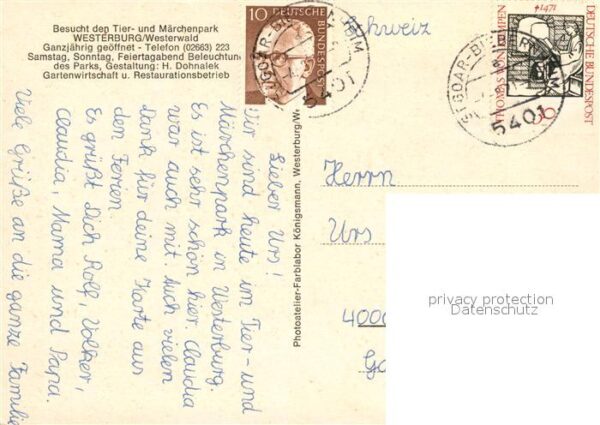 Besucht den Tier- und Märchenpark
WESTERBURG/Westerwald
Ganzjährig geöffnet - Telefon (02663) 223
Samstag, Sonntag, Feiertagabend Beleuchtun
des Parks, Gestaltung: H. Dohnalek
Gartenwirtschaft u. Restaurationsbetrieb
10
DEUTSCHE BUNDESPOST
5401
Schweiz
†1471
DEUTSCHE BUNDESPOST
30
5401
Lieber Urs!
Wir sind heute im Tier- und
Märchenpark in Westerburg.
Es ist sehr schön hier. Claudia
war auch mit. Auch vielen
Dank für deine Karte aus
den Ferien.
Es grüßt Dich Rolf, Volker,
Claudia, Mama und Papa.
Viele Grüße an die ganze Familie
Photoatelier-Farblabor Königsmann, Westerburg/W
Herrn
Urs
4000
privacy protection
Datenschutz